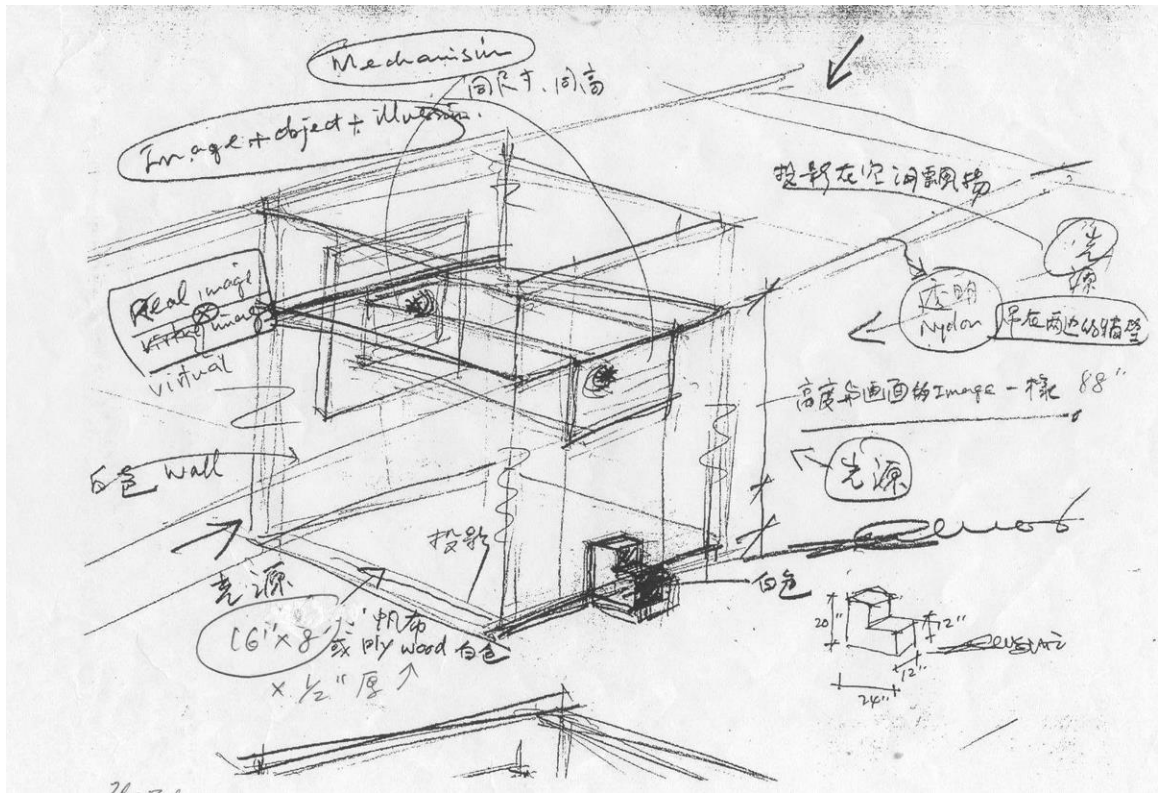 Mechanism
同尺寸、同高
Image + object + illusion
投影在空间飄揚
光源
透明
nylon
吊在两边的墙壁
Real image
virtual image
virtual
高度与画面的Image一樣 88"
光源
白色 wall
投影
光源
16" x 8'
帆布
或 ply wood 白色
x 1/2" 厚
白色
20"
12"
12"
24"